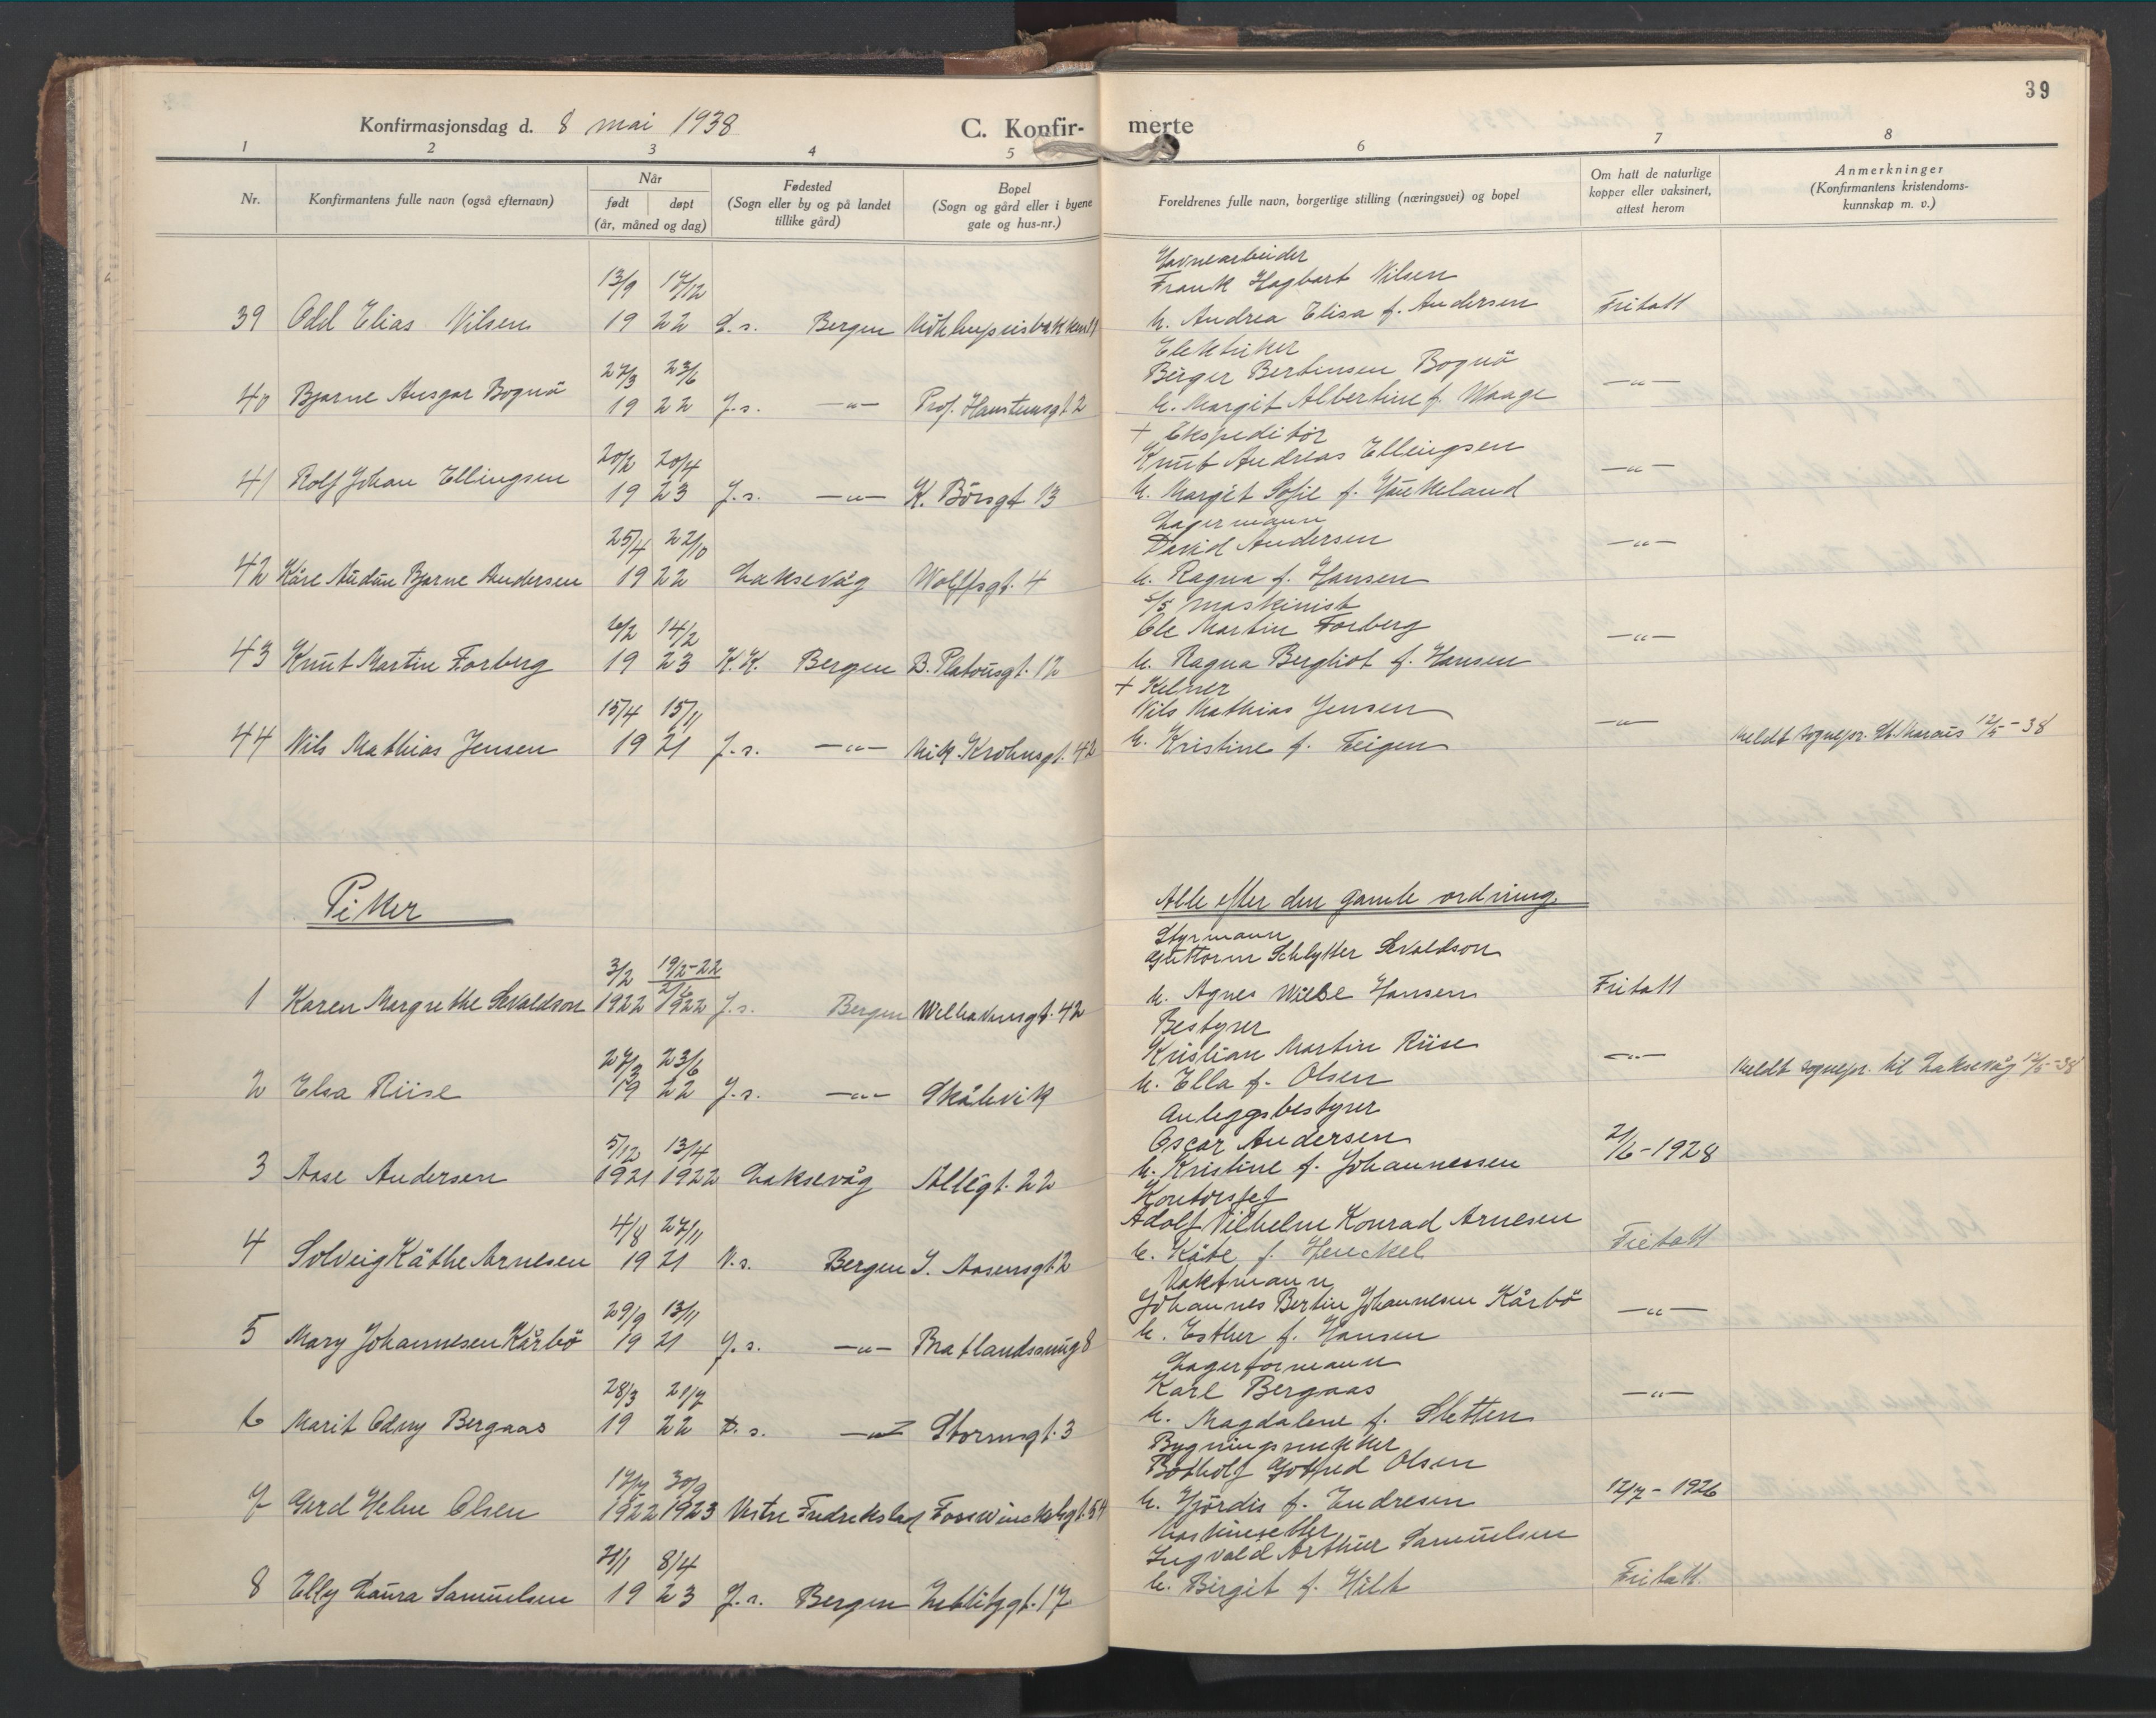 39
Konfirmasjonsdag d. 8 mai 1938 C. Konfir- merte
1 2 3 4 5 6 7 8
Nr.
Konfirmantens fulle navn (også efternavn)
Når
født døpt
(år, måned og dag)
Fødested
(Sogn eller by og på landet
tillike gård)
Bopel
(Sogn og gård eller i byene
gate og hus-nr.)
Foreldrenes fulle navn, borgerlige stilling (næringsvei) og bopel
Om hatt de naturlige
kopper eller vaksinert,
attest herom
Anmerkninger
(Konfirmantens kristendoms-
kunnskap m. v.)
Havnearbeider
13/9 17/12 Frank Hagbart Nilsen
39 Odd Elias Nilsen 19 22 D. s. Bergen h. Andrea Elisa f. Andersen Fritatt
Elektriker
27/3 23/6 Birger Bertinsen Bognö
40 Bjarne Ansgar Bognö 19 22 J. s. —"— Prof. Hansteensgt 2 h. Margit Albertine f. Waage —"—
+ Ekspeditör
20/2 20/4 Knut Andreas Ellingsen
41 Rolf Johan Ellingsen 19 23 J. s. —"— K. Börsgt 13 h. Margit Sofie f. Haukeland —"—
Lagermann
25/4 22/10 David Andersen
42 Kåre Audun Bjarne Andersen 19 22 Laksevåg Wolffsgt. 4 h. Ragna f. Hansen —"—
s/s maskinist
6/2 14/2 Ole Martin Forberg
43 Knut Martin Forberg 19 23 K. K. Bergen B. Platousgt. 12 h. Ragna Bergliot f. Hansen —"—
+ Kelner
15/4 15/11 Nils Mathias Jensen
44 Nils Mathias Jensen 19 21 J. s. —"— Mik. Krohnsgt. 42 h. Kristine f. Feigen —"— Meldt sognepr. St. Markus 12/5-38
Piker Alle efter den gamle ordning.
Styrmann
3/2 19/2-22 Guttorm Schlytter Sevaldson
1 Karen Margrethe Sevaldson 1922 1922 J. s. Bergen Welhavensgt. 42 h. Agnes Wiese Hansen Fritatt
Bestyrer
27/3 23/6 Kristian Martin Riise
2 Elsa Riise 19 22 J. s. —"— Skålevik h. Ella f. Olsen —"— Meldt sognepr. til Laksevåg 12/5-38
Anleggsbestyrer
5/12 13/4 Oscar Andersen
3 Aase Andersen 1921 1922 Laksevåg Allégt. 22 h. Kristine f. Johannessen 2/6-1928
Kontorsjef
4/8 27/11 Adolf Vilhelm Konrad Arnesen
4 Solveig Käthe Arnesen 19 21 N. s. Bergen I. Aasensgt 2 h. Käte f. Henckel Fritatt
Vaktmann
29/9 13/11 Johannes Bertin Johannesen Kårbö
5 Mary Johannesen Kårbö 19 21 J. s. —"— Bratlandssmug 8 h. Esther f. Hansen —"—
Lagerformann
28/3 21/7 Karl Bergaas
6 Marit Odny Bergaas 19 22 D. s. —"— Stormsgt. 3 h. Magdalene f. Sletten —"—
Bygningssnekker
30/9 Botholf Gotfred Olsen
7 Gerd Helene Olsen 1922 1923 Vestre Fredrikstad Fosswinckelsgt. 54 h. Hjördis f. Endresen 12/7-1926
Maskinsetter
21/1 8/4 Ingvald Arthur Samuelsen
8 Elly Laura Samuelsen 19 23 J. s. Bergen Zetlitzgt. 17 h. Birgit f. Hilt Fritatt.